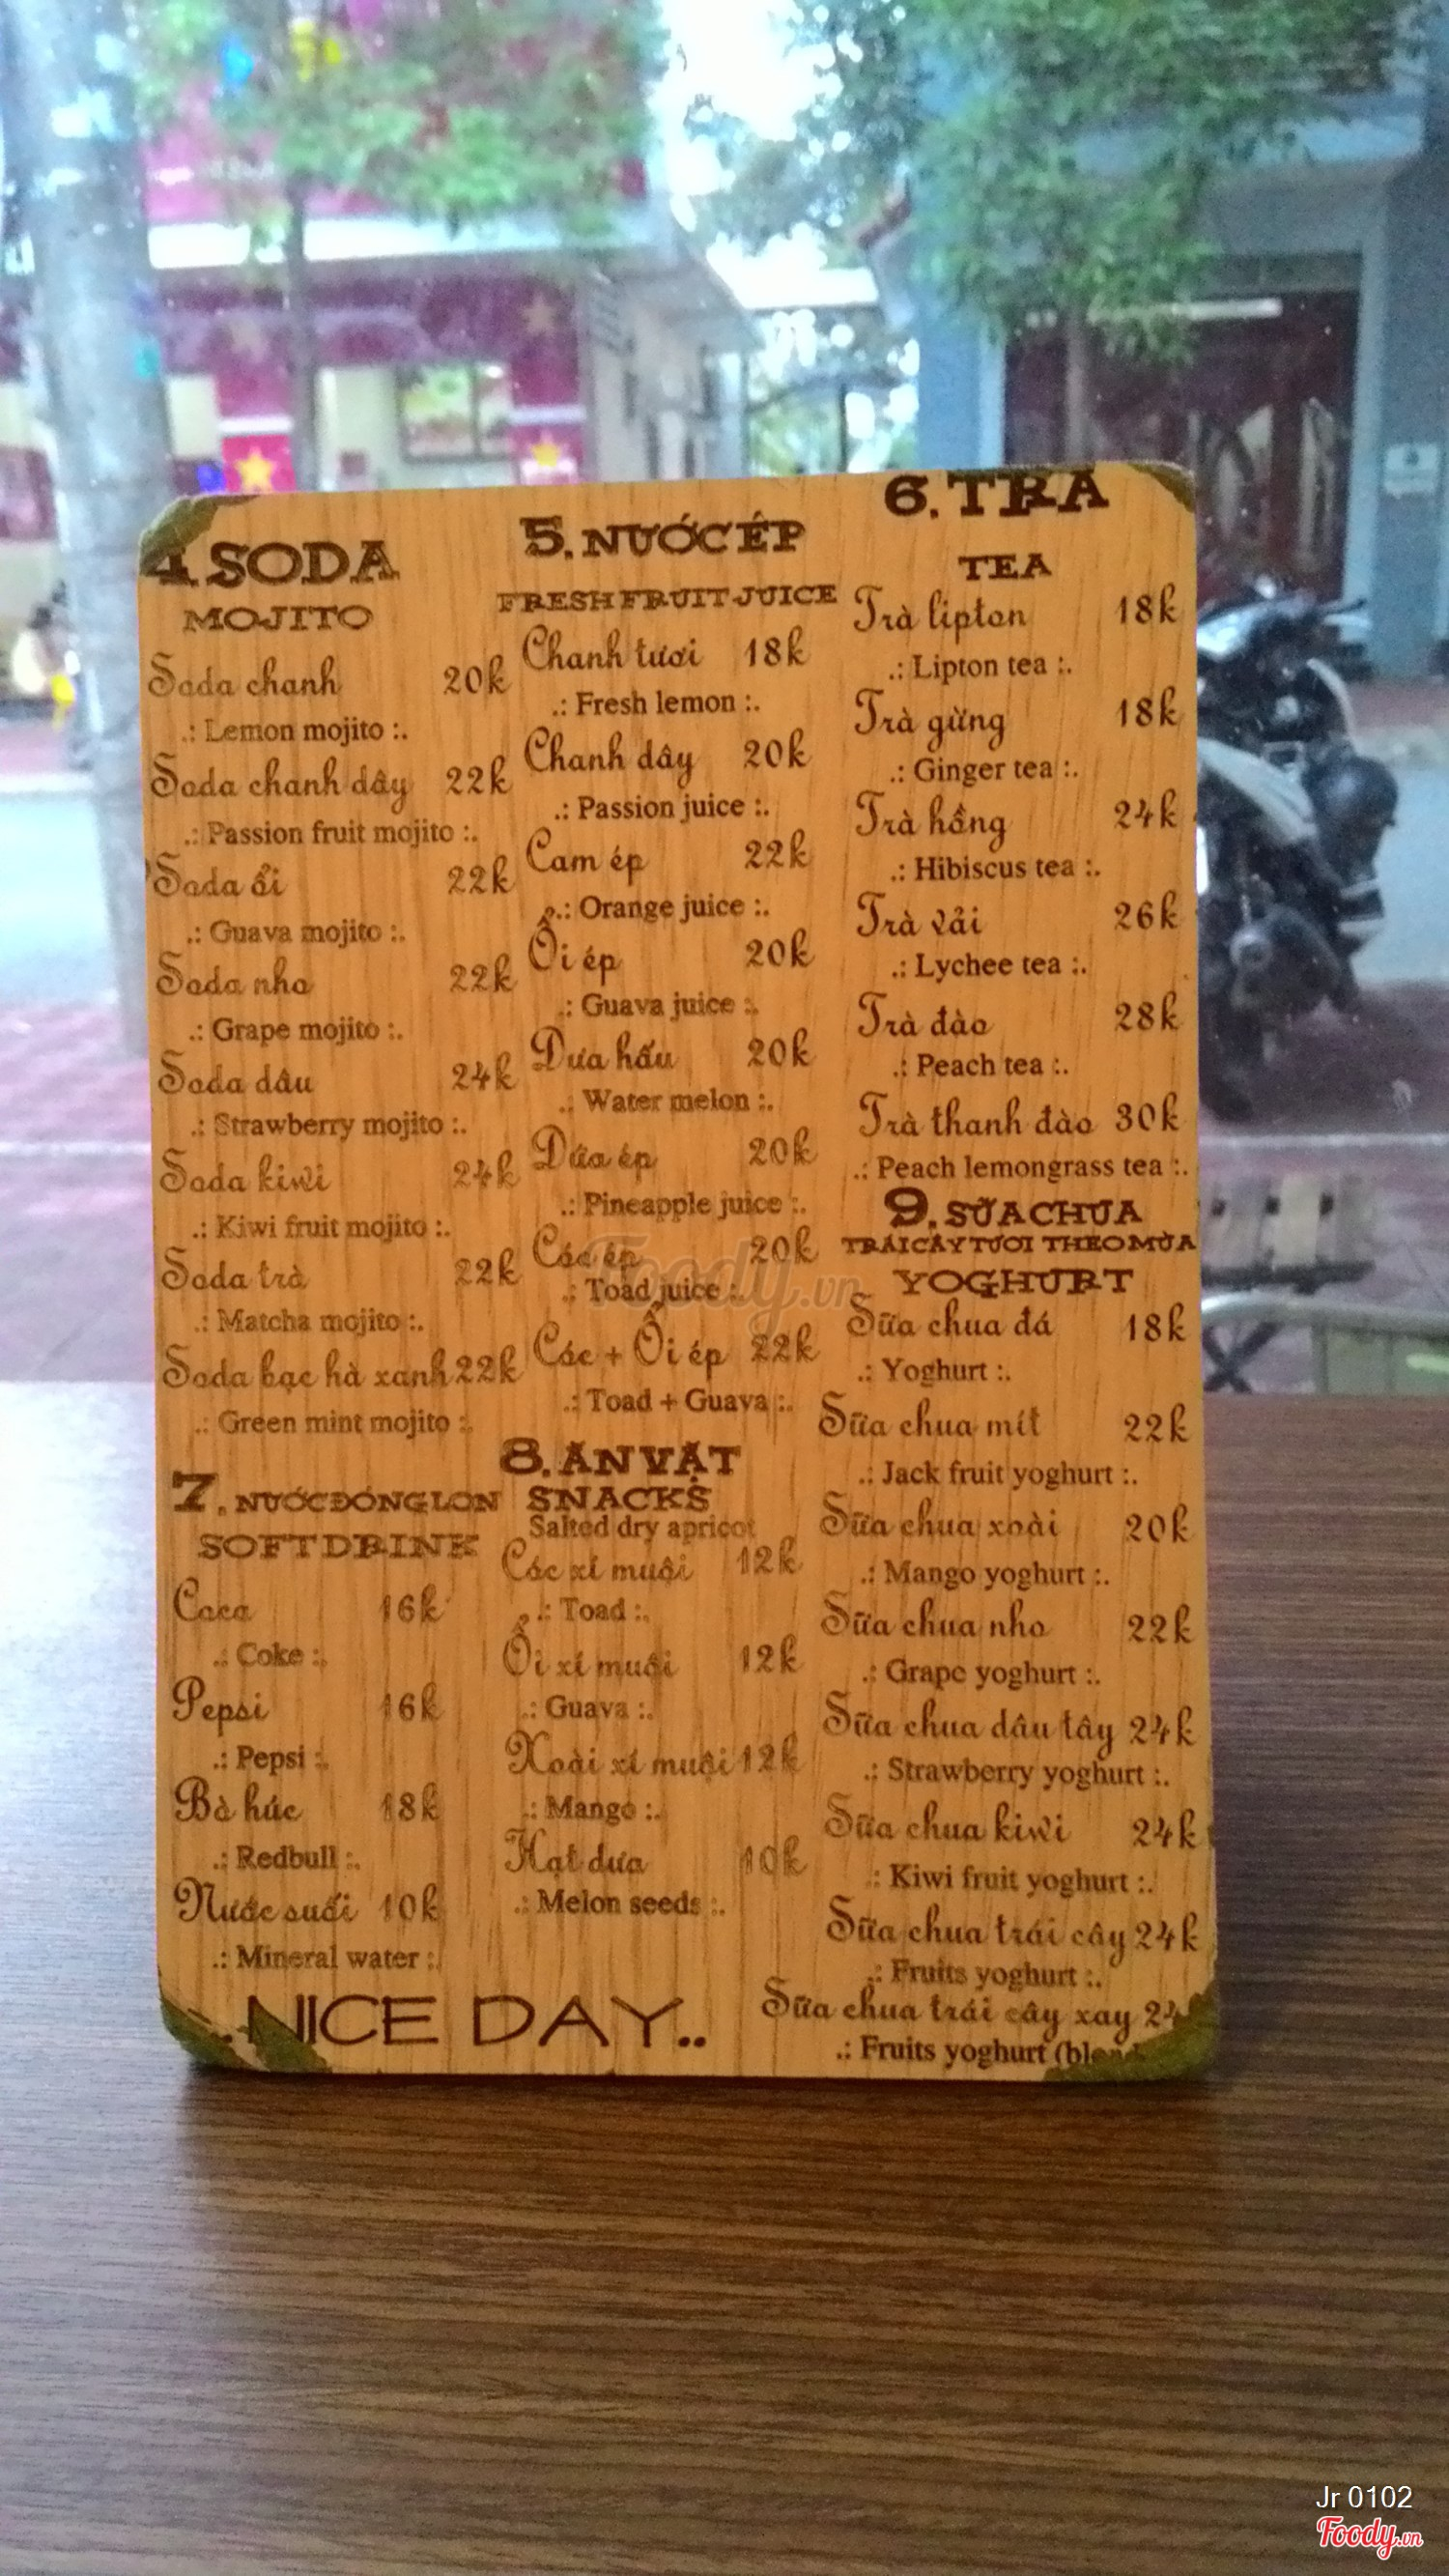 4. SODA
MOJITO
Soda chanh 20k
.: Lemon mojito :.
Soda chanh dây 22k
.: Passion fruit mojito :.
Soda ổi 22k
.: Guava mojito :.
Soda nho 22k
.: Grape mojito :.
Soda dâu 24k
.: Strawberry mojito :.
Soda kiwi 24k
.: Kiwi fruit mojito :.
Soda trà 22k
.: Matcha mojito :.
Soda bạc hà xanh 22k
.: Green mint mojito :.
5. NƯỚC ÉP
FRESH FRUIT JUICE
Chanh tươi 18k
.: Fresh lemon :.
Chanh dây 20k
.: Passion juice :.
Cam ép 22k
.: Orange juice :.
Ổi ép 20k
.: Guava juice :.
Dưa hấu 20k
.: Water melon :.
Dứa ép 20k
.: Pineapple juice :.
Cóc ép 20k
.: Toad juice :.
Cóc + Ổi ép 22k
.: Toad + Guava :.
6. TRÀ
TEA
Trà lipton 18k
.: Lipton tea :.
Trà gừng 18k
.: Ginger tea :.
Trà hồng 24k
.: Hibiscus tea :.
Trà vải 26k
.: Lychee tea :.
Trà đào 28k
.: Peach tea :.
Trà thanh đào 30k
.: Peach lemongrass tea :.
7. NƯỚC ĐÓNG LON
SOFT DRINK
Coca 16k
.: Coke :.
Pepsi 16k
.: Pepsi :.
Bò húc 18k
.: Redbull :.
Nước suối 10k
.: Mineral water :.
8. ĂN VẶT
SNACKS
Salted dry apricot
Cóc xí muội 12k
.: Toad :.
Ổi xí muội 12k
.: Guava :.
Xoài xí muội 12k
.: Mango :.
Hạt dưa 10k
.: Melon seeds :.
9. SỮA CHUA
TRÁI CÂY TƯƠI THEO MÙA
YOGHURT
Sữa chua đá 18k
.: Yoghurt :.
Sữa chua mít 22k
.: Jack fruit yoghurt :.
Sữa chua xoài 20k
.: Mango yoghurt :.
Sữa chua nho 22k
.: Grape yoghurt :.
Sữa chua dâu tây 24k
.: Strawberry yoghurt :.
Sữa chua kiwi 24k
.: Kiwi fruit yoghurt :.
Sữa chua trái cây 24k
.: Fruits yoghurt :.
Sữa chua trái cây xay 24
.: Fruits yoghurt (blend
NICE DAY..
Foody.vn
Jr 0102
Foody.vn